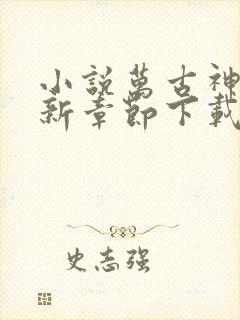 小說萬古神
新章節下載
史志强